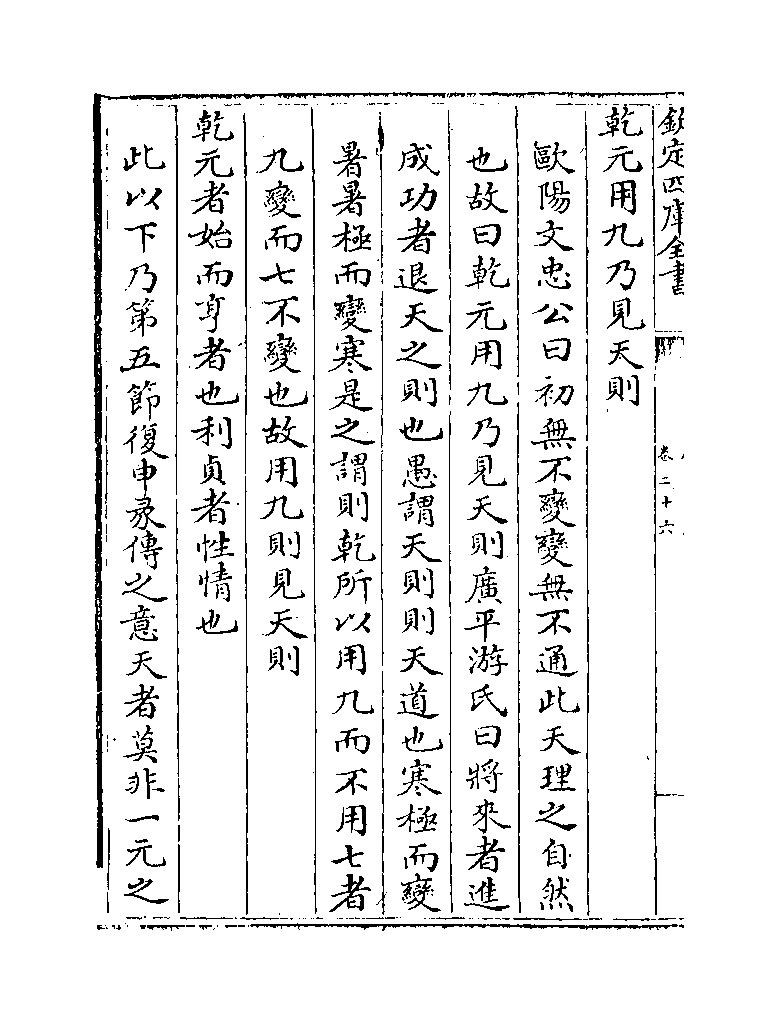 欽定四庫全書
卷二十六
乾元用九乃見天則
歐陽文忠公曰初無不變變無不通此天理之自然
也故曰乾元用九乃見天則廣平游氏曰將來者進
成功者退天之則也愚謂天則則天道也寒極而變
暑暑極而變寒是之謂則乾所以用九而不用七者
九變而七不變也故用九則見天則
乾元者始而亨者也利貞者性情也
此以下乃第五節復申彖傳之意天者莫非一元之